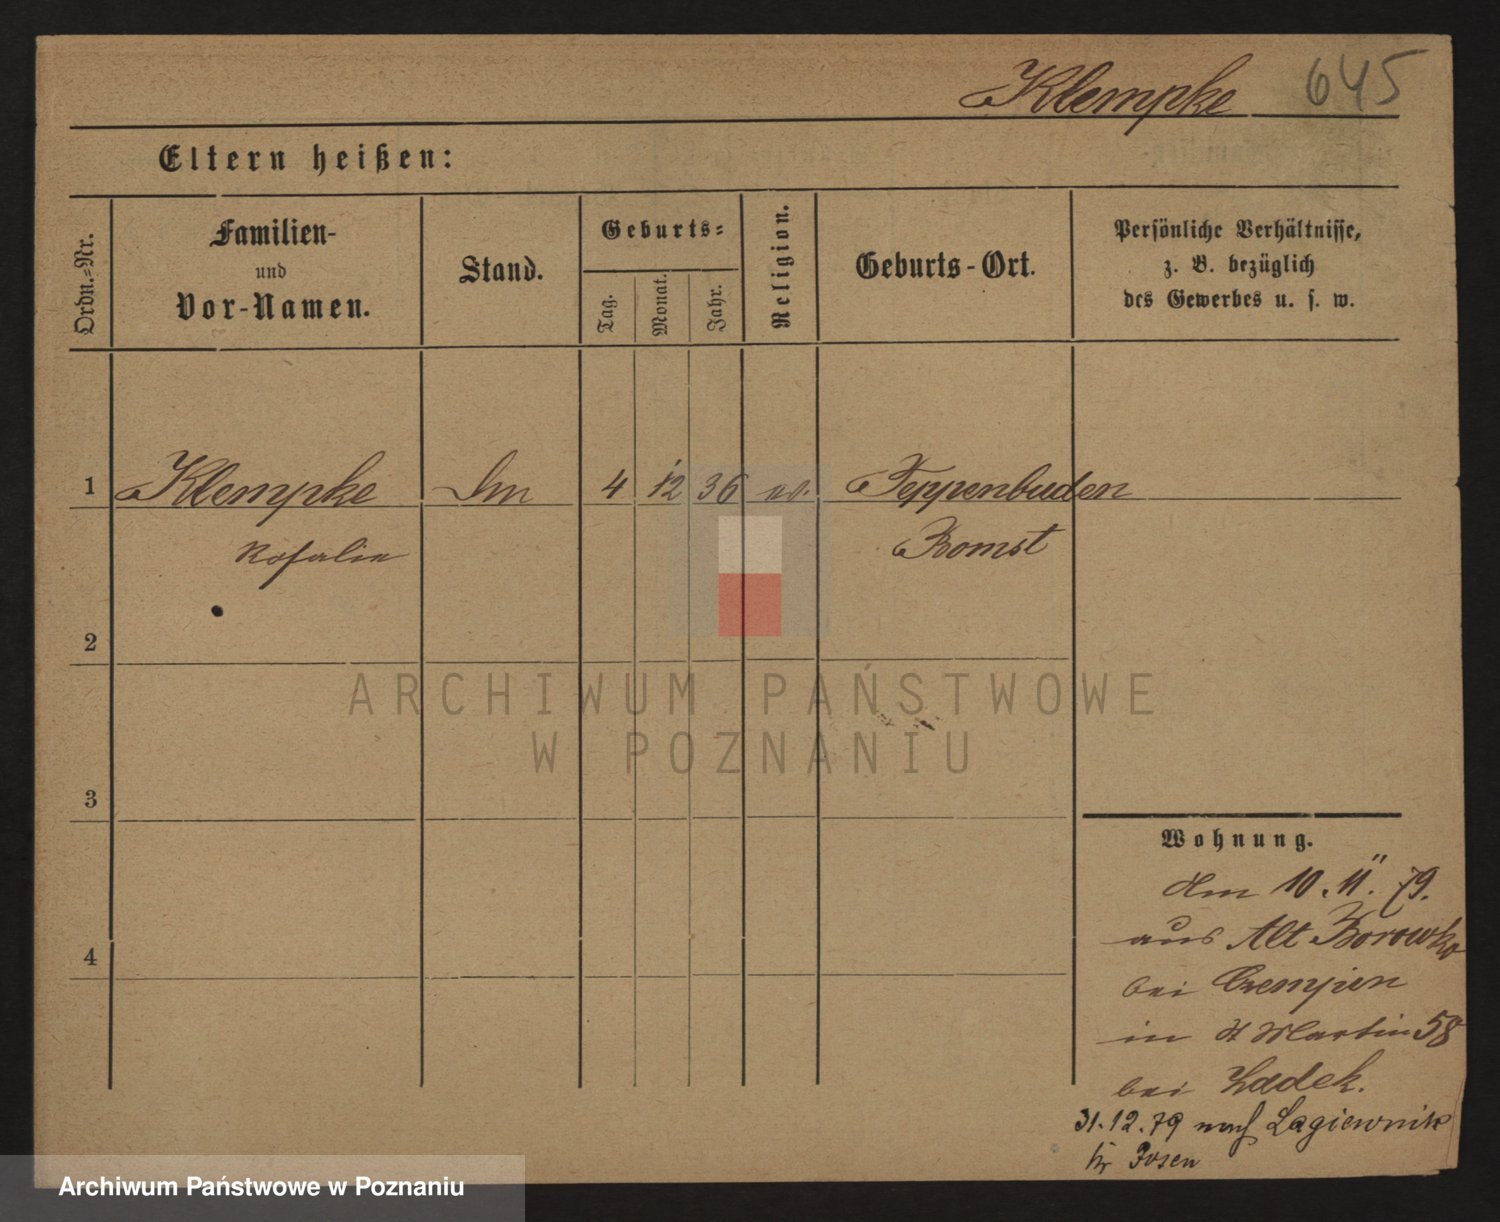 Klempke 645
Eltern heißen:
Ordn.=Nr.
Familien-
und
Vor-Namen.
Stand.
Geburts=
Tag.
Monat.
Jahr.
Religion.
Geburts-Ort.
Persönliche Verhältnisse,
z. B. bezüglich
des Gewerbes u. s. w.
1 Klempke 4 12 36 ev. Teppenbuden
Rosalie Bomst
2
ARCHIWUM PAŃSTWOWE
W POZNANIU
3
4
Wohnung.
10. 11. 79.
aus Alt Borowko
bei Czempien
in St Martin 58
bei Ladek.
31.12.79 nach Lagiewnik
Posen
Archiwum Państwowe w Poznaniu